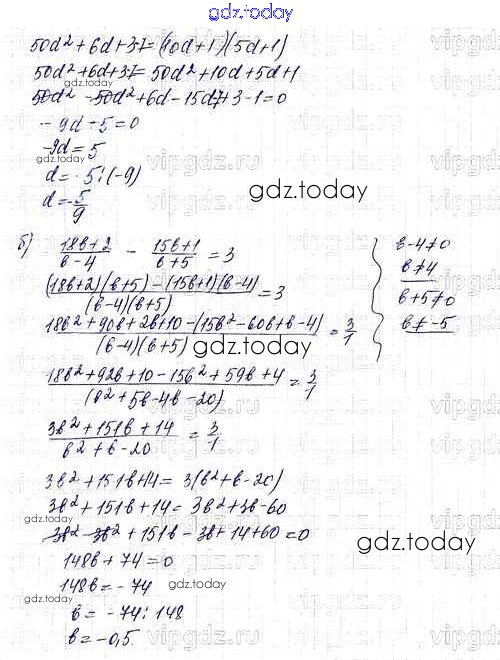 gdz.today
50d² + 6d + 37 = (10d + 1)(5d + 1)
50d² + 6d + 37 = 50d² + 10d + 5d + 1
gdz.today
50d² - 50d² + 6d - 15d + 3 - 1 = 0
- 9d - 5 = 0
-9d = 5
gdz.today
d = 5 : (-9)
d = -5/9
gdz.today
б) (18b + 2)/(b - 4) - (15b + 1)/(b + 5) = 3
b - 4 ≠ 0
b ≠ 4
b + 5 ≠ 0
b ≠ -5
((18b + 2)(b + 5) - (15b + 1)(b - 4))/((b - 4)(b + 5)) = 3
(18b² + 90b + 2b + 10 - (15b² - 60b + b - 4))/((b - 4)(b + 5)) = 3/1
gdz.today
(18b² + 92b + 10 - 15b² + 59b + 4)/(b² + 5b - 4b - 20) = 3/1
(3b² + 151b + 14)/(b² + b - 20) = 3/1
gdz.today
3b² + 151b + 14 = 3(b² + b - 20)
3b² + 151b + 14 = 3b² + 3b - 60
gdz.today
3b² - 3b² + 151b - 3b + 14 + 60 = 0
gdz.today
148b + 74 = 0
148b = - 74
gdz.today
b = - 74 : 148
b = - 0,5
gdz.today
vipgdz.ru